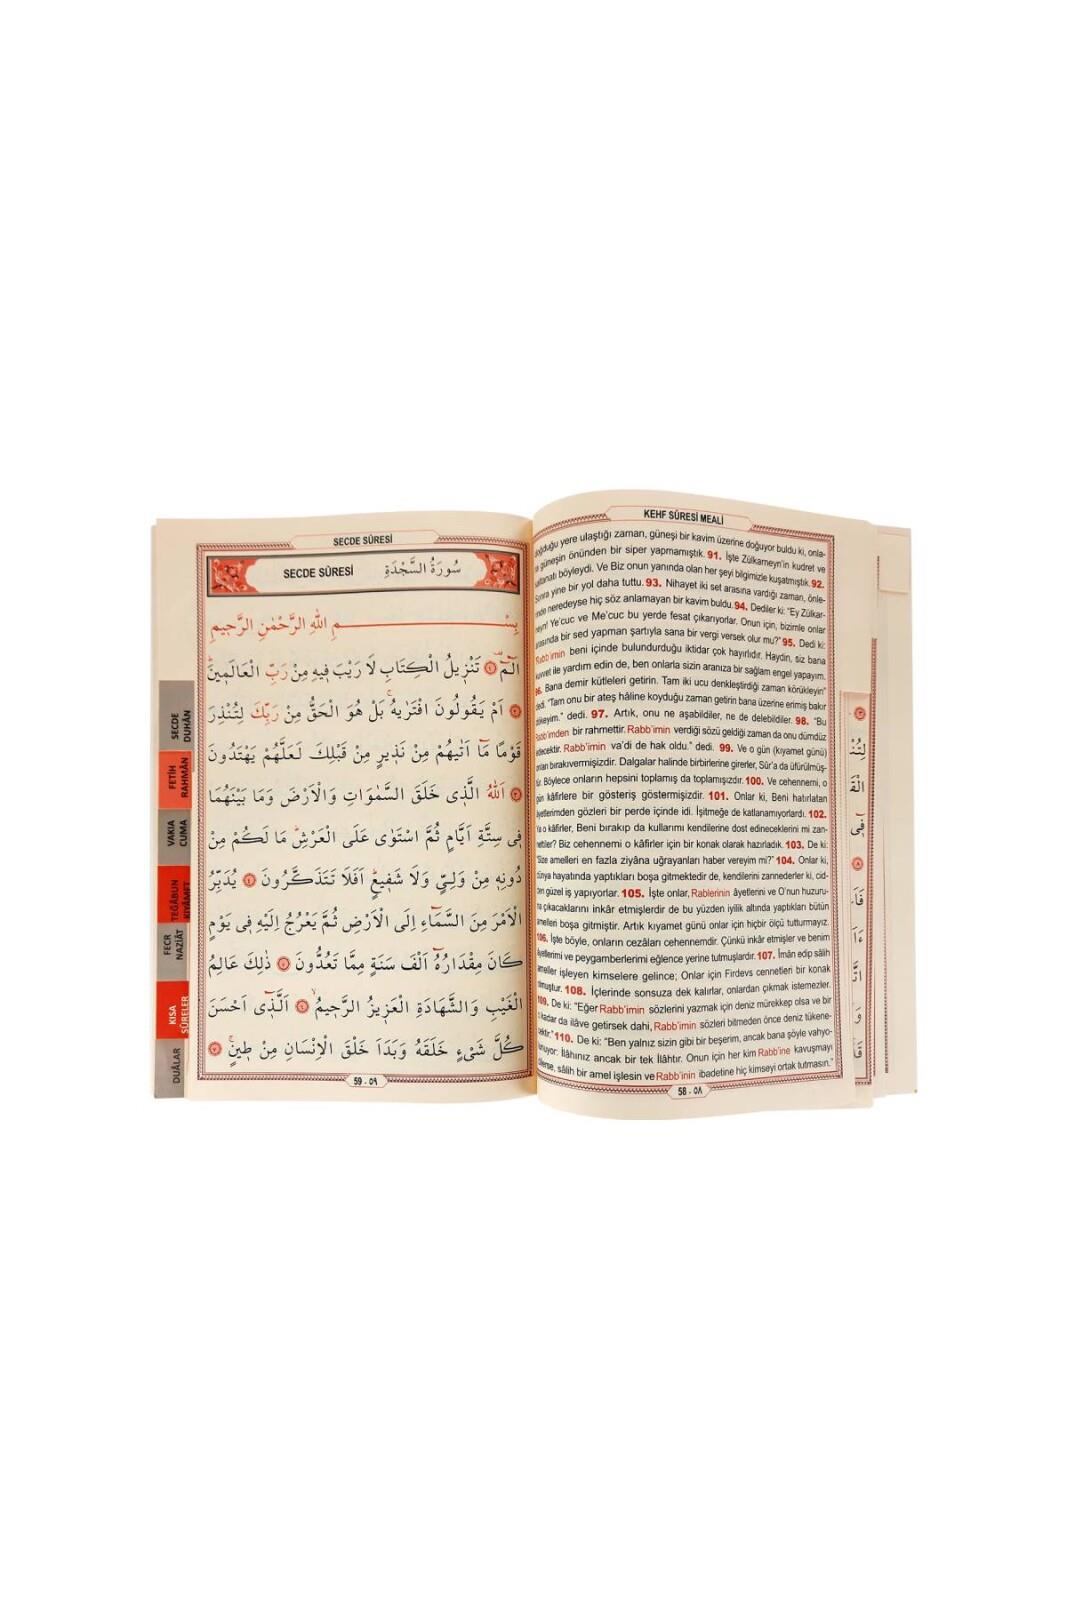 KEHF SÛRESİ MEALİ
doğduğu yere ulaştığı zaman, güneşi bir kavim üzerine doğuyor buldu ki, onla-
güneşin önünden bir siper yapmamıştık. 91. İşte Zülkarneyn'in kudret ve
saltanatı böyleydi. Ve Biz onun yanında olan her şeyi bilgimizle kuşatmıştık. 92.
Sonra yine bir yol daha tuttu. 93. Nihayet iki set arasına vardığı zaman, önle-
rinde neredeyse hiç söz anlamayan bir kavim buldu. 94. Dediler ki: "Ey Zülkar-
neyn! Ye'cuc ve Me'cuc bu yerde fesat çıkarıyorlar. Onun için, bizimle onlar
arasında bir sed yapman şartıyla sana bir vergi versek olur mu?" 95. Dedi ki:
"Rabb'imin beni içinde bulundurduğu iktidar çok hayırlıdır. Haydin, siz bana
kuvvet ile yardım edin de, ben onlarla sizin aranıza bir sağlam engel yapayım.
96. Bana demir kütleleri getirin. Tam iki ucu denkleştirdiği zaman körükleyin"
dedi. "Tam onu bir ateş hâline koyduğu zaman getirin bana üzerine erimiş bakır
dökeyim." dedi. 97. Artık, onu ne aşabildiler, ne de delebildiler. 98. "Bu
Rabb'imden bir rahmettir. Rabb'imin verdiği sözü geldiği zaman da onu dümdüz
edecektir. Rabb'imin va'di de hak oldu." dedi. 99. Ve o gün (kıyamet günü)
onları bırakıvermişizdir. Dalgalar halinde birbirlerine girerler, Sûr'a da üfürülmüş-
tür. Böylece onların hepsini toplamış da toplamışızdır. 100. Ve cehennemi, o
gün kâfirlere bir gösteriş göstermişizdir. 101. Onlar ki, Beni hatırlatan
âyetlerimden gözleri bir perde içinde idi. İşitmeğe de katlanamıyorlardı. 102.
Ya o kâfirler, Beni bırakıp da kullarımı kendilerine dost edineceklerini mi zan-
nettiler? Biz cehennemi o kâfirler için bir konak olarak hazırladık. 103. De ki:
"Size amelleri en fazla ziyâna uğrayanları haber vereyim mi?" 104. Onlar ki,
dünya hayatında yaptıkları boşa gitmektedir de, kendilerini zannederler ki, cid-
den güzel iş yapıyorlar. 105. İşte onlar, Rablerinin âyetlerini ve O'nun huzuru-
na çıkacaklarını inkâr etmişlerdir de bu yüzden iyilik altında yaptıkları bütün
amelleri boşa gitmiştir. Artık kıyamet günü onlar için hiçbir ölçü tutturmayız.
106. İşte böyle, onların cezâları cehennemdir. Çünkü inkâr etmişler ve benim
âyetlerimi ve peygamberlerimi eğlence yerine tutmuşlardır. 107. İmân edip sâlih
ameller işleyen kimselere gelince; Onlar için Firdevs cennetleri bir konak
olmuştur. 108. İçlerinde sonsuza dek kalırlar, onlardan çıkmak istemezler.
109. De ki: "Eğer Rabb'imin sözlerini yazmak için deniz mürekkep olsa ve bir
o kadar da ilâve getirsek dahi, Rabb'imin sözleri bitmeden önce deniz tükene-
cektir." 110. De ki: "Ben yalnız sizin gibi bir beşerim, ancak bana şöyle vahyo-
lunuyor: İlâhınız ancak bir tek İlâhtır. Onun için her kim Rabb'ine kavuşmayı
dilerse, sâlih bir amel işlesin ve Rabb'inin ibadetine hiç kimseyi ortak tutmasın."
58 - ٥٨
SECDE SÛRESİ
SECDE SÛRESİ سُورَةُ السَّجْدَةِ
بِسْــــــمِ اللّٰهِ الرَّحْمٰنِ الرَّحٖيمِ
الٓمٓ ۚ ﴿١﴾ تَنْزٖيلُ الْكِتَابِ لَا رَيْبَ فٖيهِ مِنْ رَبِّ الْعَالَمٖينَ ؕ
﴿٢﴾ اَمْ يَقُولُونَ افْتَرٰيهُ ۚ بَلْ هُوَ الْحَقُّ مِنْ رَبِّكَ لِتُنْذِرَ
قَوْمًا مَٓا اَتٰيهُمْ مِنْ نَذٖيرٍ مِنْ قَبْلِكَ لَعَلَّهُمْ يَهْتَدُونَ
﴿٣﴾ اَللّٰهُ الَّذٖى خَلَقَ السَّمٰوَاتِ وَالْاَرْضَ وَمَا بَيْنَهُمَا
فٖى سِتَّةِ اَيَّامٍ ثُمَّ اسْتَوٰى عَلَى الْعَرْشِ ؕ مَا لَكُمْ مِنْ
دُونِهٖ مِنْ وَلِىٍّ وَلَا شَفٖيعٍ ؕ اَفَلَا تَتَذَكَّرُونَ ﴿٤﴾ يُدَبِّرُ
الْاَمْرَ مِنَ السَّمَٓاءِ اِلَى الْاَرْضِ ثُمَّ يَعْرُجُ اِلَيْهِ فٖى يَوْمٍ
كَانَ مِقْدَارُهُٓ اَلْفَ سَنَةٍ مِمَّا تَعُدُّونَ ﴿٥﴾ ذٰلِكَ عَالِمُ
الْغَيْبِ وَالشَّهَادَةِ الْعَزٖيزُ الرَّحٖيمُ ۙ ﴿٦﴾ اَلَّذٖٓى اَحْسَنَ
كُلَّ شَىْءٍ خَلَقَهُ وَبَدَاَ خَلْقَ الْاِنْسَانِ مِنْ طٖينٍ ۚ ﴿٧﴾
59 - ٥٩
SECDE
DUHÂN
FETİH
RAHMÂN
VAKIA
CUMA
TEĞÂBUN
KIYÂMET
FECR
NAZİÂT
KISA
SÛRELER
DUÂLAR